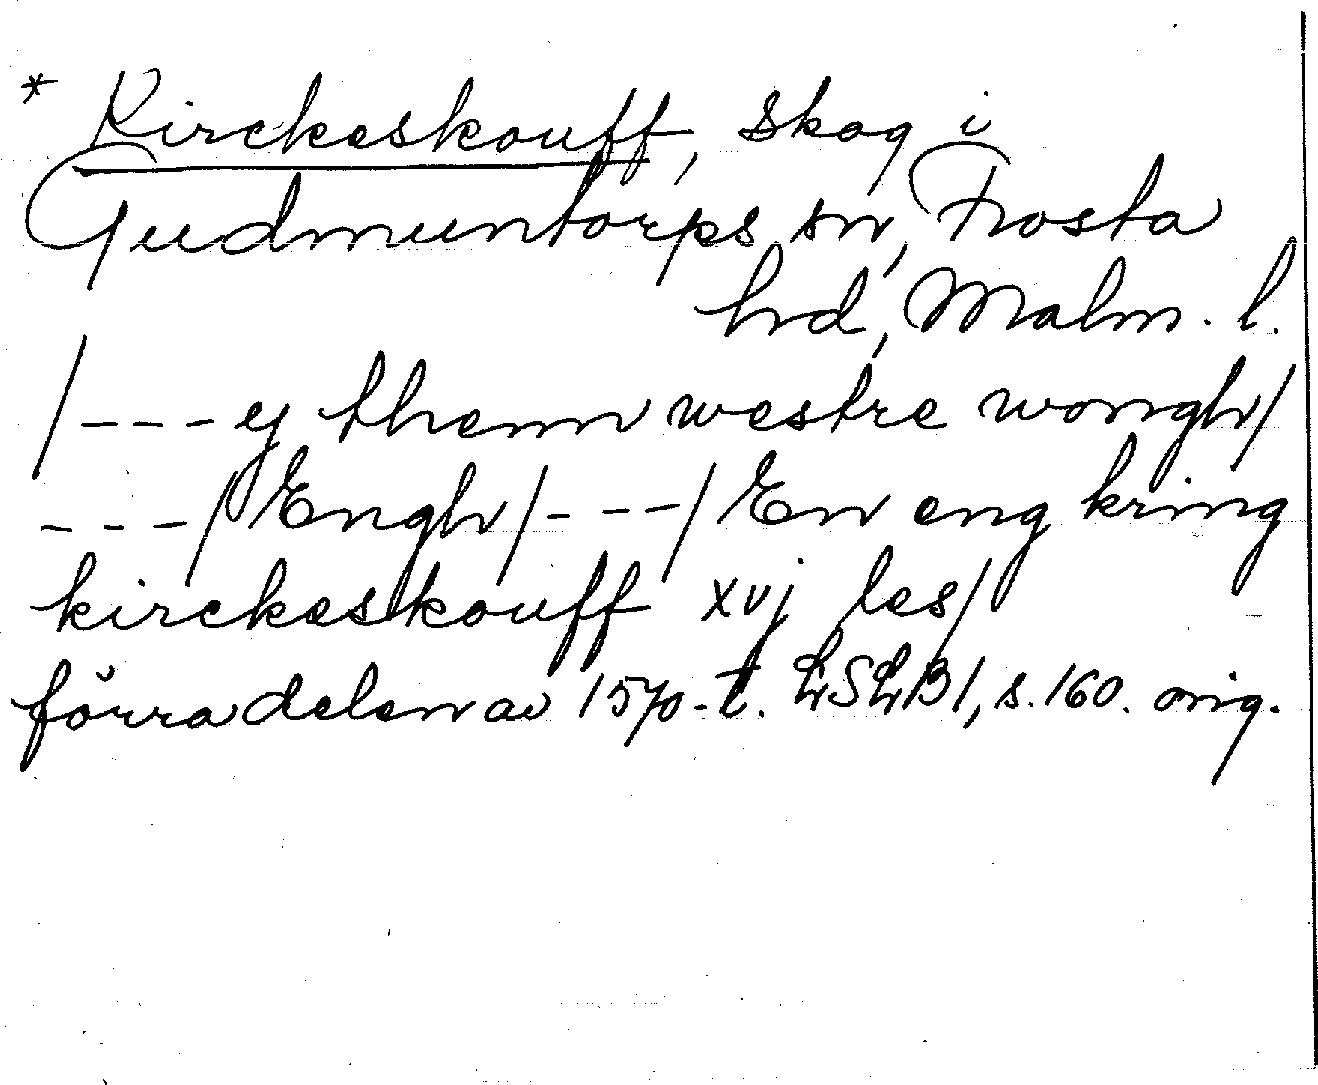 * Kirckeskouff, skog i
Gudmuntorps sn, Frosta
hd, Malm. l.
/---ej them westre wongh/
---/Engh/---/En eng kring
kirckeskouff xvj les/
förra delen av 1570-t. LSLB1, s. 160. orig.